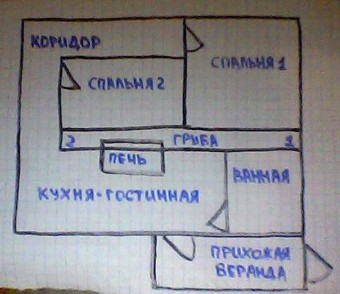 КОРИДОР
СПАЛЬНЯ 1
СПАЛЬНЯ 2
2 ГРИБА 1
ПЕНЬ
КУХНЯ-ГОСТИННАЯ
ВАННАЯ
ПРИХОЖАЯ
ВЕРАНДА